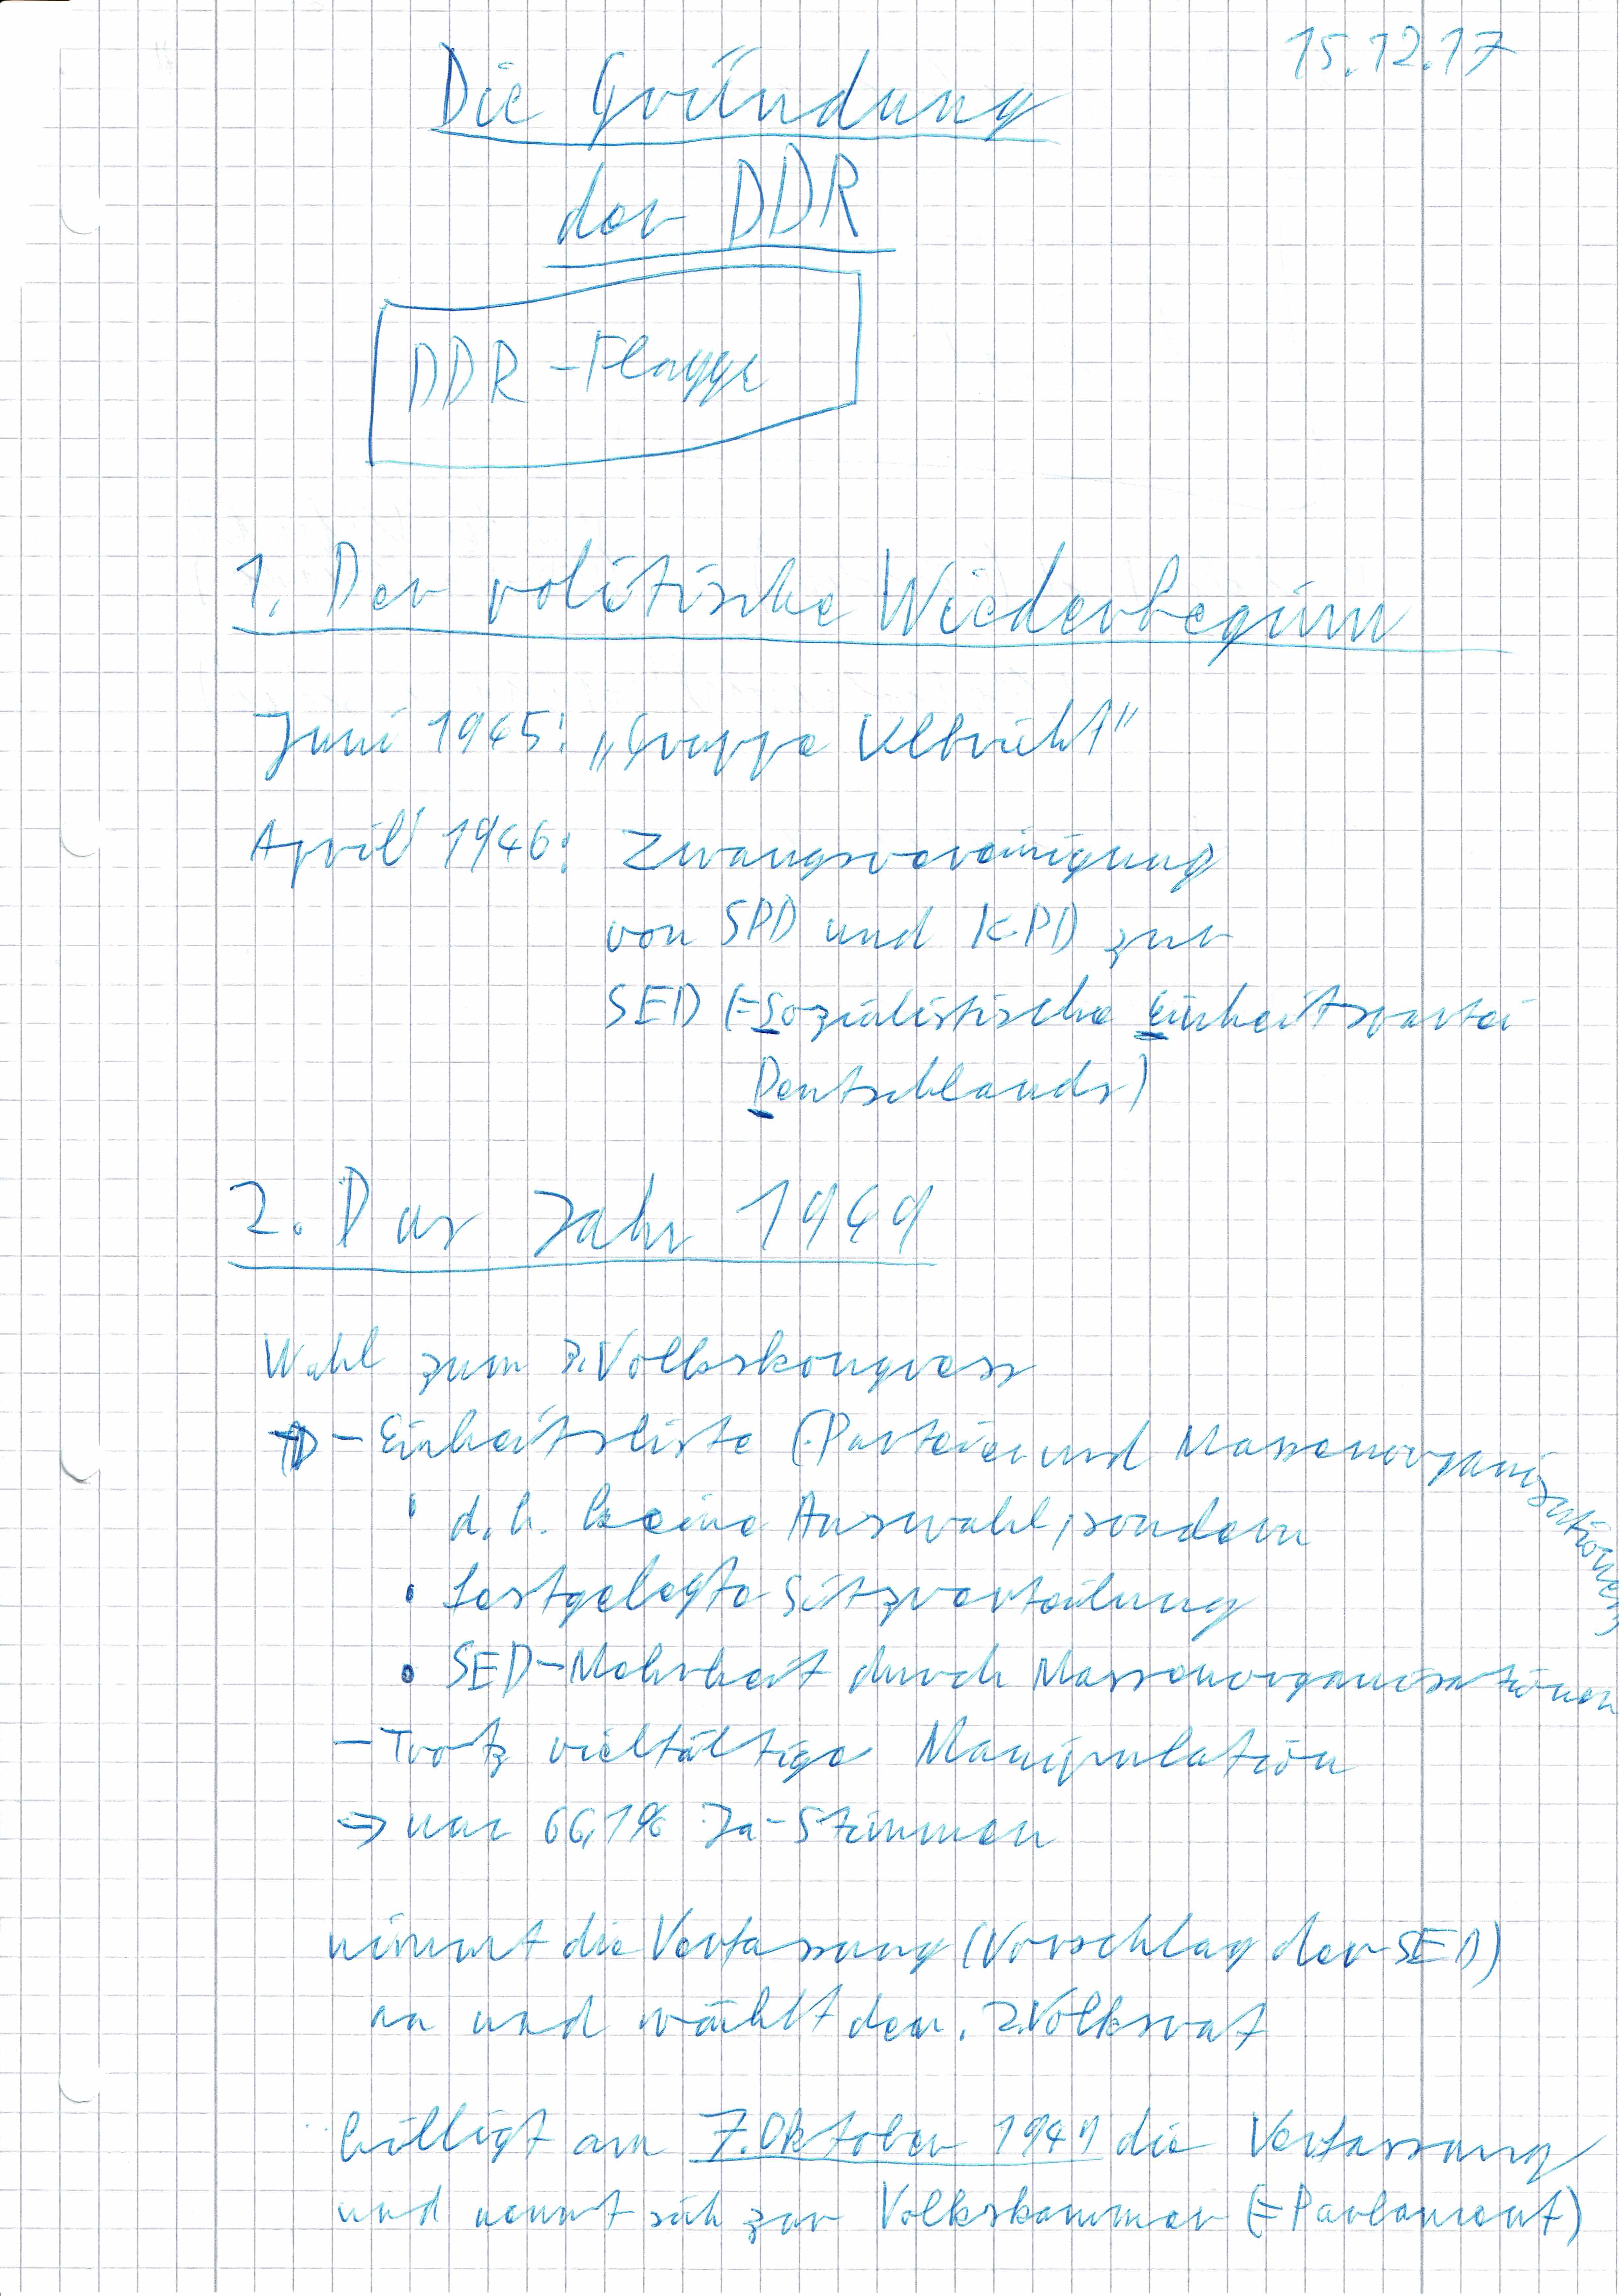 15.12.17
Die Gründung
der DDR
DDR-Flagge
1. Der politische Wiederbeginn
Juni 1945: „Gruppe Ulbricht"
April 1946: Zwangsvereinigung
von SPD und KPD zur
SED (=Sozialistische Einheitspartei
Deutschlands)
2. Das Jahr 1949
Wahl zum 3. Volkskongress
- Einheitsliste (Parteien und Massenorganisationen)
• d.h. keine Auswahl, sondern
• festgelegte Sitzverteilung
• SED-Mehrheit durch Massenorganisationen
- Trotz vielfältige Manipulation
⇒ nur 66,1% Ja-Stimmen
nimmt die Verfassung (Vorschlag der SED)
an und wählt den 2. Volksrat
billigt am 7. Oktober 1949 die Verfassung
und nennt sich zur Volkskammer (=Parlament)